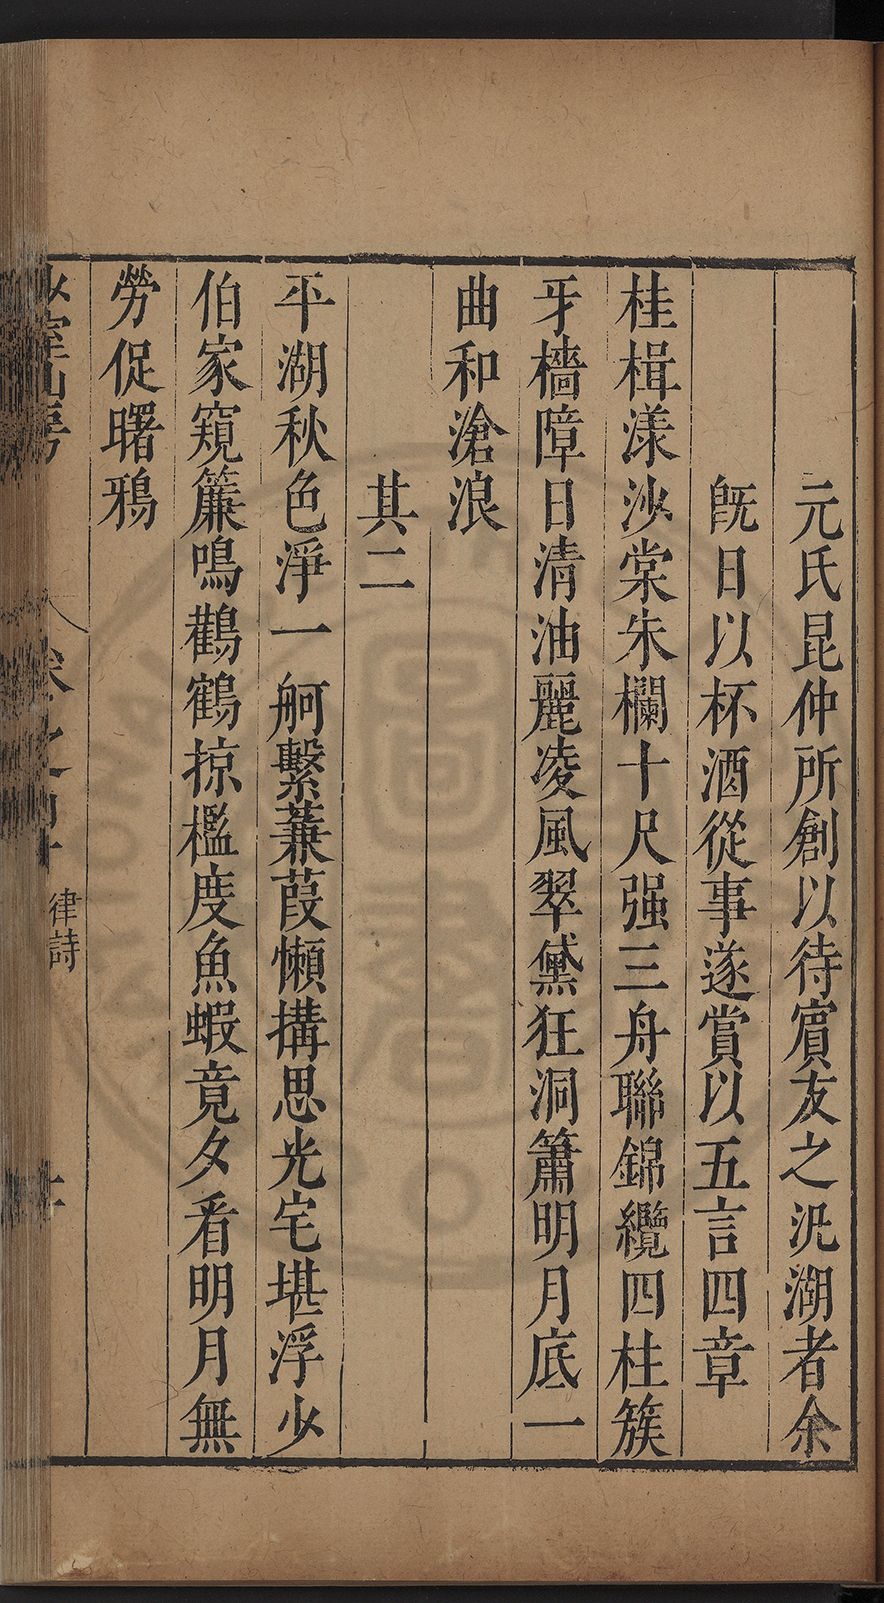 元氏昆仲所創以待賓友之汎湖者余
旣日以杯酒從事遂賞以五言四章
桂楫漾沙棠朱欄十尺强三舟聯錦纜四柱簇
牙檣障日清油麗凌風翠黛狂洞簫明月底一
曲和滄浪
其二
平湖秋色淨一舸繫蒹葭懶搆思光宅堪浮少
伯家窺簾鳴鸛鶴掠檻度魚蝦竟夕看明月無
勞促曙鴉
少室山房
卷之四十
律詩